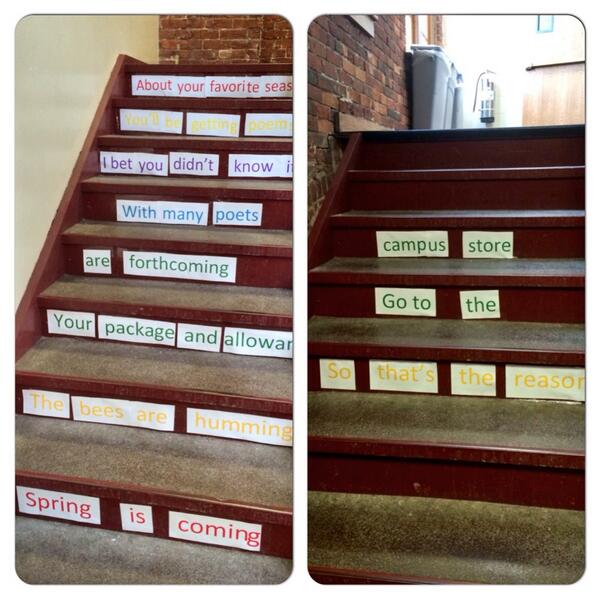 Spring is coming
The bees are humming
Your package and allowan
are forthcoming
With many poets
I bet you didn't know i
You'll be getting poem
About your favorite seas
So that's the reason
Go to the
campus store